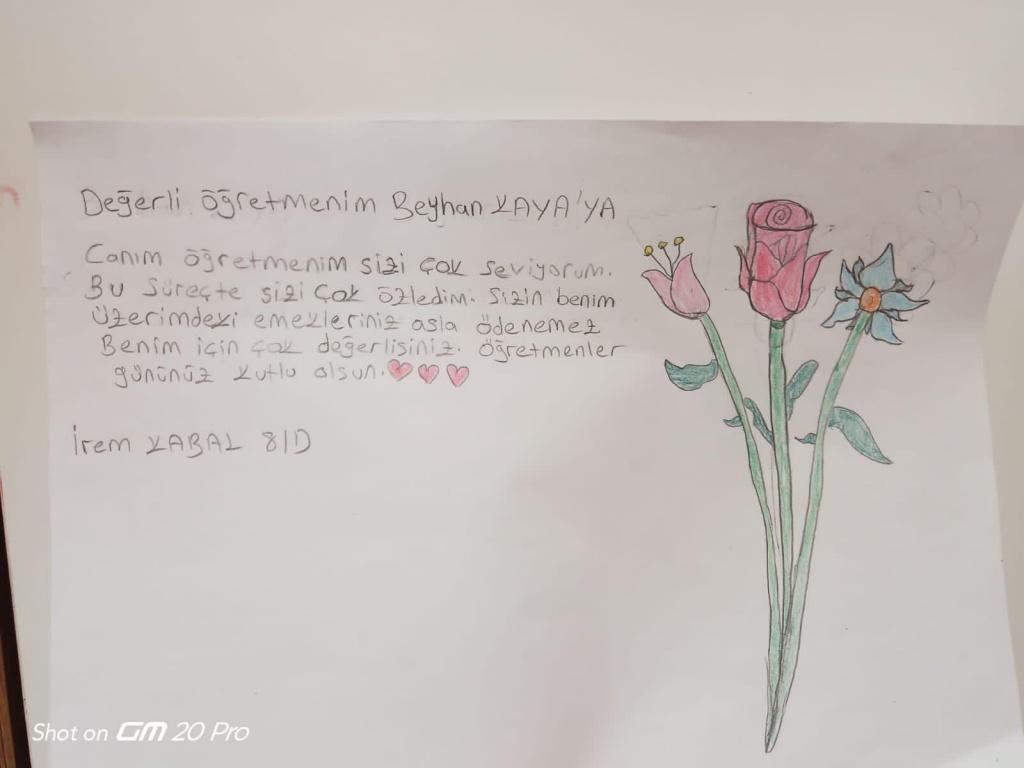 Değerli öğretmenim Beyhan KAYA'YA
Canım öğretmenim sizi çok seviyorum.
Bu süreçte sizi çok özledim. Sizin benim
üzerimdeki emekleriniz asla ödenemez
Benim için çok değerlisiniz. Öğretmenler
gününüz kutlu olsun.
İrem KABAL 8/D
Shot on GM 20 Pro